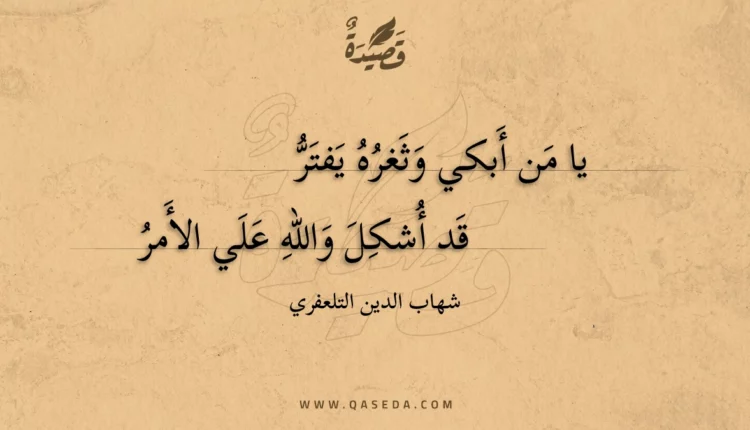 قَصِيْدَةٌ
يا مَن أَبكي وَثَغرُهُ يَفتَرُّ
قَد أُشكِلَ وَاللَهِ عَلَي الأَمرُ
شهاب الدين التلعفري
WWW.QASEDA.COM